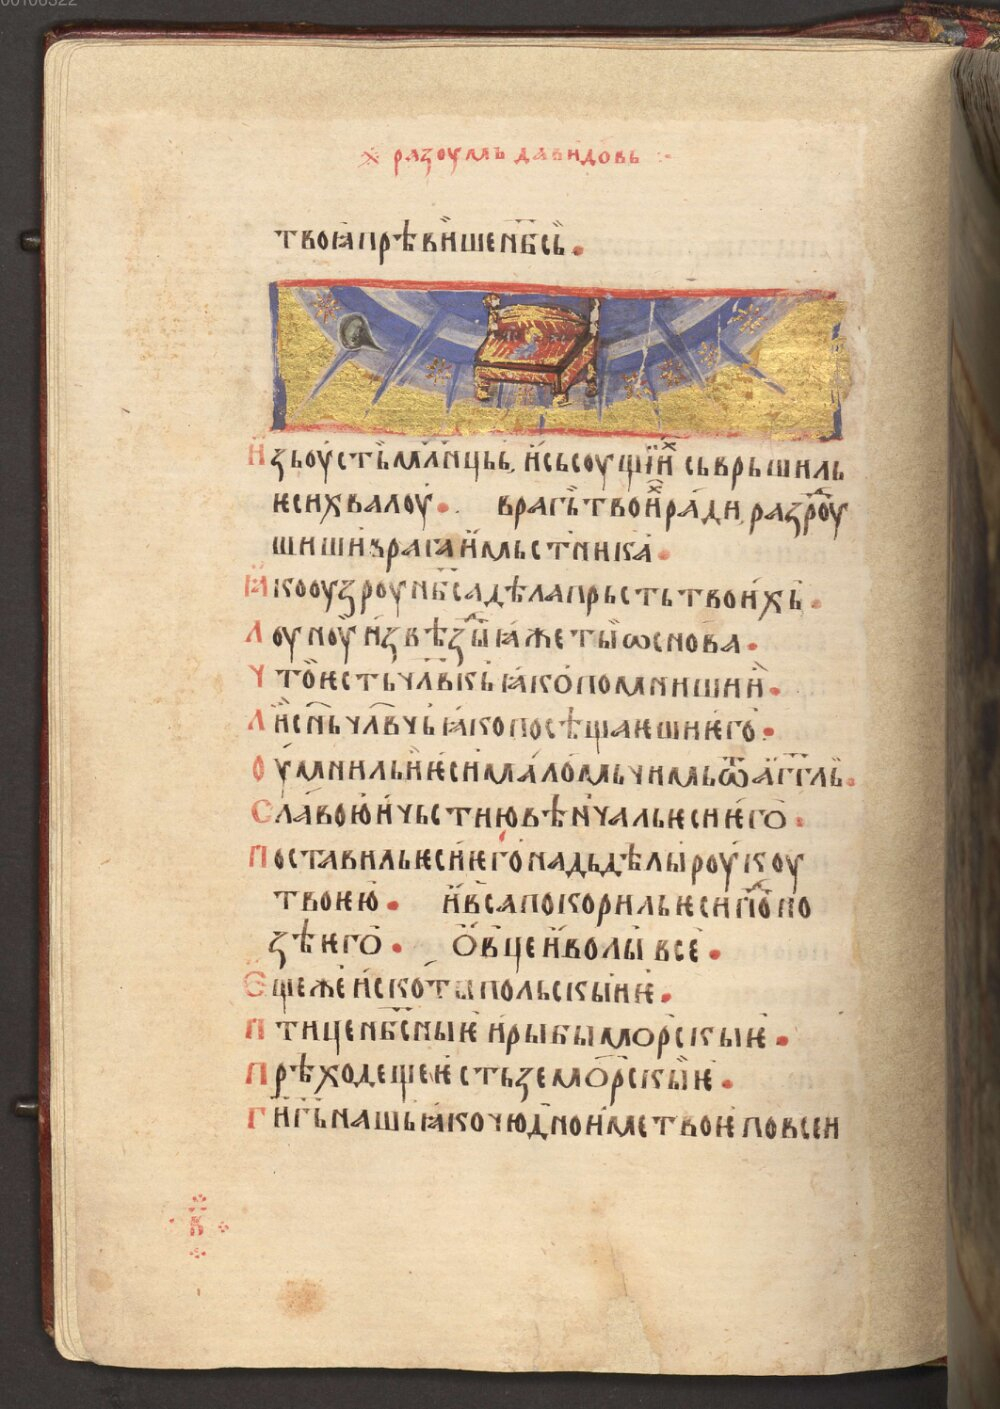 00106322
разоумь давидовь
твоꙗ прѣвꙑше нб҃сь.
Изь оусть мл҇нць, и сьсоущїиⷯ сьврьшиль
ѥси хвалоу. врагь твоиⷯ ради, разⷣроу
шиши врага и мьстника.
Ꙗко оузроу нб҃са дѣла прьсть твоихь.
Лоуноу и звѣзⷣы ꙗже ты ѡснова.
Что ѥсть чл҃вкь ꙗко помниши и.
Ли сн҃ь чл҃вчь ꙗко посѣщаѥши ѥго.
Оумниль и ѥси маломь чимь ѿ агг҃ль.
Славою и чьстию вѣнчаль ѥси ѥго.
Поставиль ѥси ѥго надь дѣлы роукоу
твоѥю. и вса покориль ѥси поⷣ но
зѣ ѥго. Овце и волы все.
Еще же и скоты польскыиѥ.
Птице нб҃сныѥ и рыбы морскыѥ.
Прѣходещеѥ стьзе морскыиѥ.
Ги҃ г҃ь нашь ꙗко чюдно име твоѥ по всеи
в